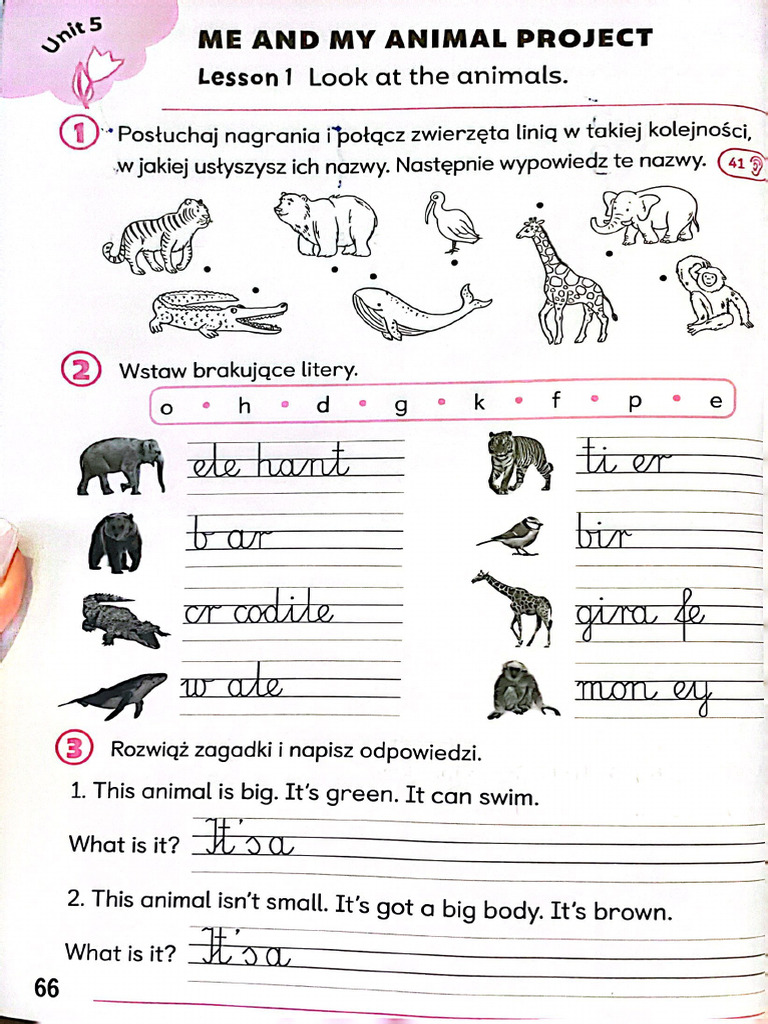 Unit 5
ME AND MY ANIMAL PROJECT
Lesson 1 Look at the animals.
1 Posłuchaj nagrania i połącz zwierzęta linią w takiej kolejności,
w jakiej usłyszysz ich nazwy. Następnie wypowiedz te nazwy. 41
2 Wstaw brakujące litery.
o • h • d • g • k • f • p • e
ele hant
ti er
b ar
bir
cr codile
gira fe
w ale
mon ey
3 Rozwiąż zagadki i napisz odpowiedzi.
1. This animal is big. It's green. It can swim.
What is it? It's a
2. This animal isn't small. It's got a big body. It's brown.
What is it? It's a
66